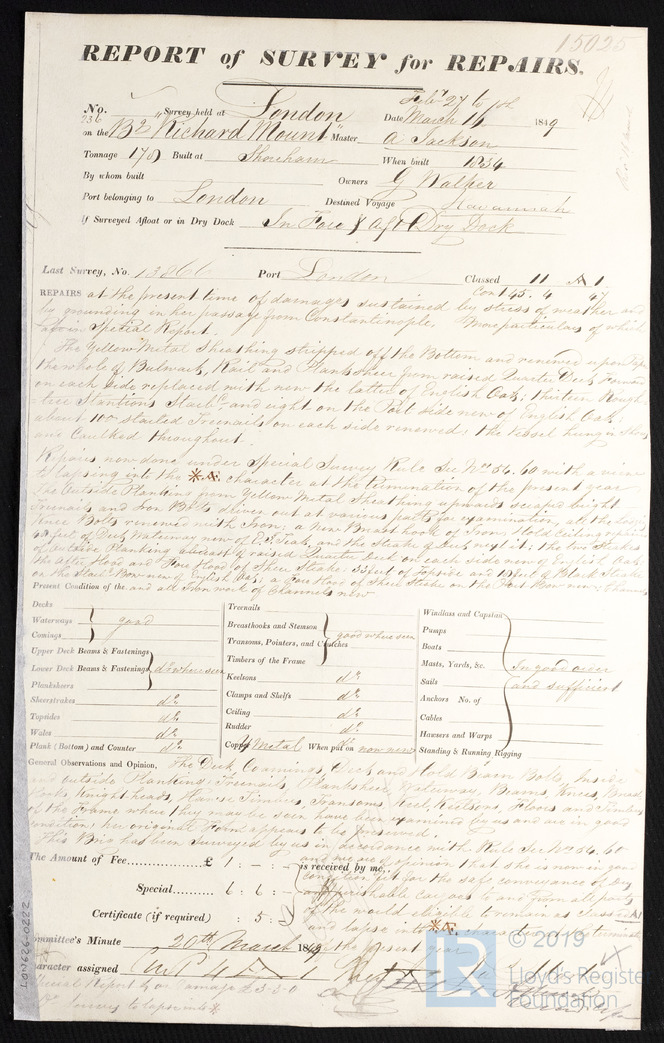 15025
REPORT of SURVEY for REPAIRS.
Feby 27 to
No. 236 Survey held at London Date March 16 1849
on the Bg "Richard Mount" Master A Jackson
Tonnage 170 Built at Shoreham When built 1834
By whom built Owners G Walker
Port belonging to London Destined Voyage Havannah
If Surveyed Afloat or in Dry Dock In Fore & Aft Dry Dock
Last Survey, No. 13866 Port London Classed 11 A 1
Cont 45. 4 47
REPAIRS at the present time of damages sustained by stress of weather and
by grounding in her passage from Constantinople. More particulars of which
Special Report.
The Yellow Metal Sheathing stripped off the Bottom and renewed upon
the whole of Bulwark, Rail and Planksheer from raised Quarter Deck
on each side replaced with new the latter of English Oak; thirteen Rough
tree Stantions and eight on the Port side new of English Oak;
about 100 started Treenails on each side renewed; the vessel hung in
and Caulked throughout.
Repairs now done under Special Survey Rule Sec Nos 54. 60 with a view
to lapsing into the *A. character at the termination of the present year
The Outside Planking from Yellow Metal Sheathing upwards scraped bright
Treenails and Iron Bolts driven out at various parts for examination, all the
Knee Bolts renewed with Iron; a new Breast hook of Iron; Hold Ceiling
feet of Deck Waterway new of E I Teak, and the Strake of Deck next it; the two Strakes
of outside Planking abreast of raised Quarter deck on each side new of English Oak
the After Hood and Fore Hood of Sheer Strake; 33 feet of Topside and feet of Black Strake
on the Starbd Bow new of English Oak; a Fore Hood of Sheer Strake on the Port Bow new;
Present Condition of the and all Iron work of Channels new
Decks
Waterways good
Comings
Upper Deck Beams & Fastenings
Lower Deck Beams & Fastenings do where seen
Planksheers
Sheerstrakes do
Topsides do
Wales do
Plank (Bottom) and Counter do
Treenails
Breasthooks and Stemson
Transoms, Pointers, and Crutches good where seen
Timbers of the Frame
Keelsons do
Clamps and Shelfs do
Ceiling do
Rudder do
Copper Y Metal When put on now new
Windlass and Capstan
Pumps
Boats
Masts, Yards, &c. In good order
Sails and sufficient
Anchors No. of
Cables
Hausers and Warps
Standing & Running Rigging
General Observations and Opinion, The Deck Coamings, Deck and Hold Beam Bolts, Inside
and outside Planking; Treenails, Planksheer, Waterway, Beams, Knees, Breast
Hooks Knightheads, Hawse Timbers, Transoms, Keel, Keelsons, Floors and Timbers
of the Frame where they may be seen have been examined by us and are in good
condition; her original Form appears to be preserved.
This Brig has been Surveyed by us in accordance with Rule Sec Nos 54. 60
and we are of opinion that she is now in good
The Amount of Fee............... £ 1 : - : - is received by me,
condition fit for the safe conveyance of Dry
Special............ 6 : 6 : - and perishable cargoes to and from all parts
of the world eligible to remain as classed A1
Certificate (if required) : 5 : and lapse into *A.
of the present year
Committee's Minute 20th March 1849
Character assigned
Special Report for Damage £3-3-0
Survey to lapse into *
LON656-0222
LR
© 2019
Lloyd's Register
Foundation